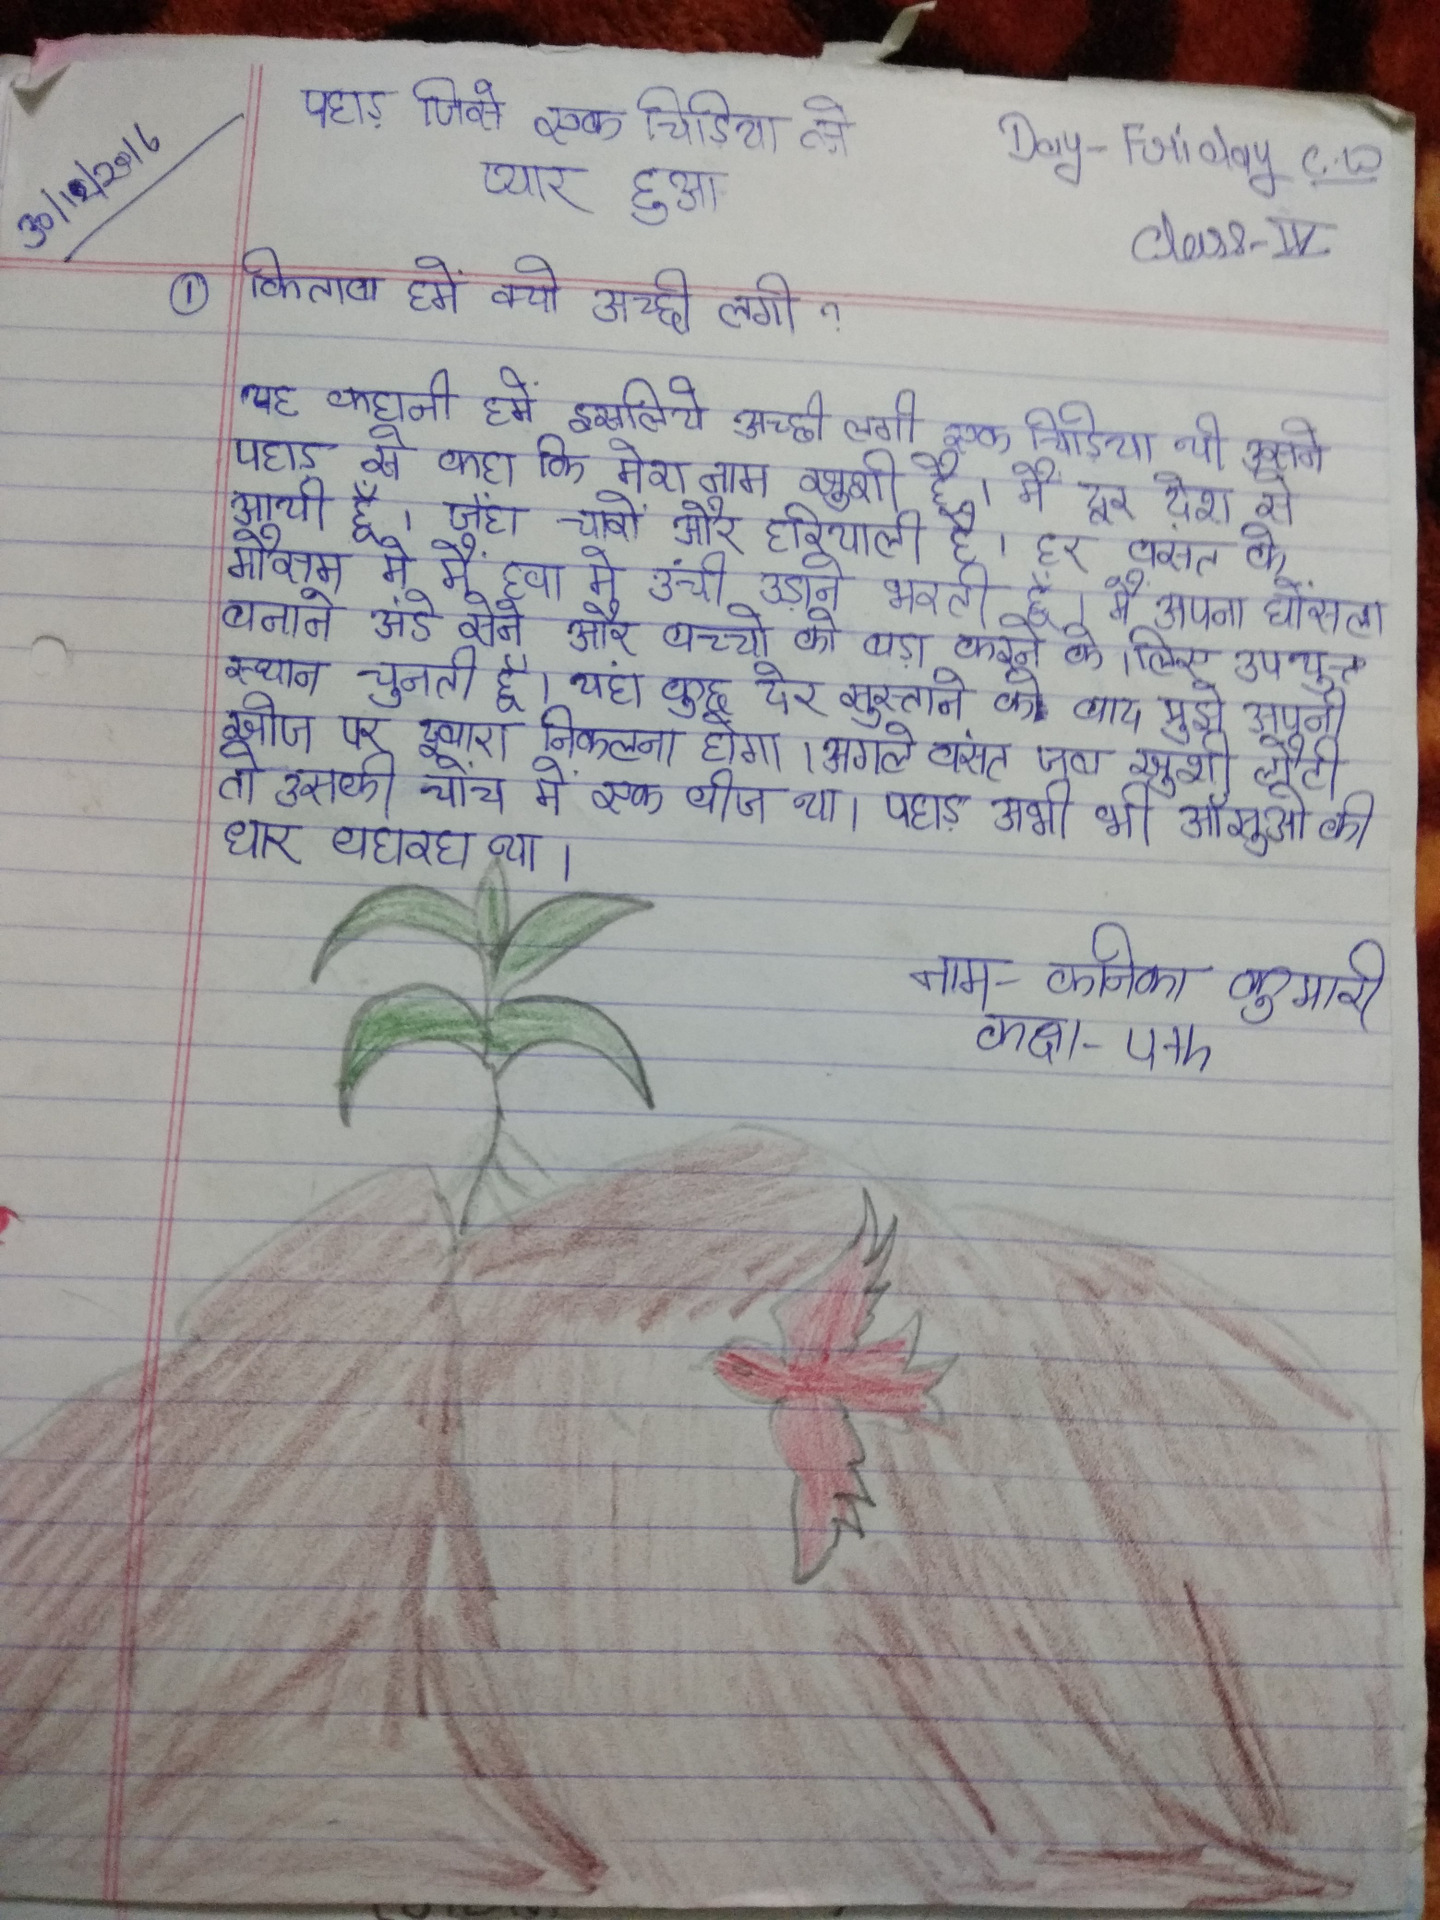 30/12/2016
पहाड़ जिसे एक चिडिया से
प्यार हुआ
Day- Friday C.W
Class- IV
① किताब हमें क्यो अच्छी लगी ?
यह कहानी हमें इसलिये अच्छी लगी एक चिड़िया थी उसने
पहाड़ से कहा कि मेरा नाम खुशी है। मैं दूर देश से
आयी हूँ। जंहा चारों और हरियाली है। हर वसंत के
मौसम मे मैं हवा मे उंची उड़ाने भरती हूँ। मैं अपना घोंसला
बनाने अंडे सेने और बच्चो को बड़ा करने के लिए उपयुक्त
स्थान चुनती हूँ। यंहा कुछ देर सुस्ताने के बाद मुझे अपनी
खोज पर दुबारा निकलना होगा। अगले वसंत जब खुशी लौटी
तो उसकी चोंच में एक बीज था। पहाड़ अभी भी आँसुओ की
धार बहा रहा था।
नाम- कनिका कुमारी
कक्षा- 4th